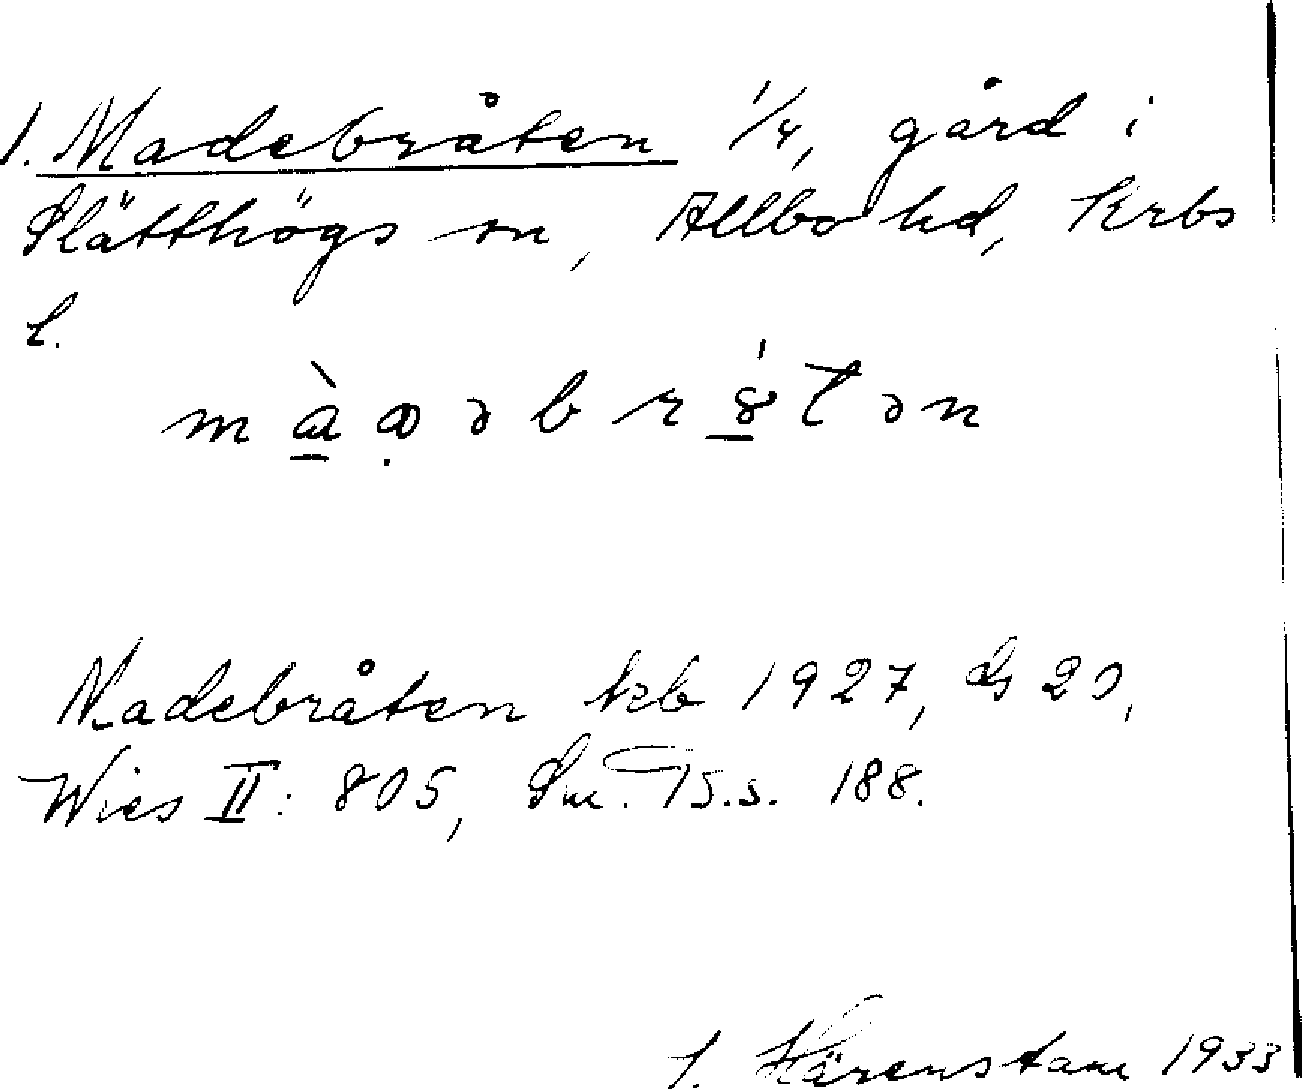 1. Madebråten 1/4, gård i
Slätthögs sn, Allbo hd, Krbs
l.
Madebråten kb 1927, ds 20,
Wies II: 805, Sm. 15. s. 188.
S. Härenstam 1933